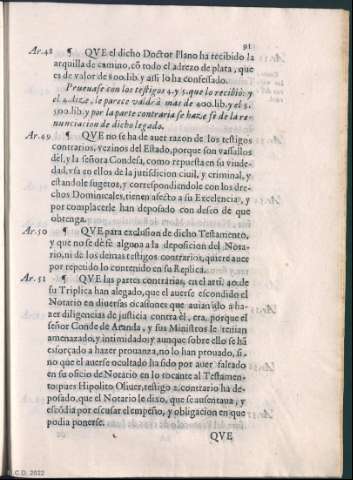 91
Ar.48 ¶ QVE el dicho Doctor Plano ha recibido la
arquilla de camino, cõ todo el adrezo de plata, que
es de valor de 800.lib. y assi lo ha confessado.
Prueuase con los testigos 4. y 5. que lo recibió: y
el 4. dize, le parece valdrà mas de 400.lib. y el 5.
500.lib. y por la parte contraria se haze fè de la re-
nunciacion de dicho legado.
Ar.49 ¶ QVE no se ha de auer razon de los testigos
contrarios, vezinos del Estado, porque son vassallos
del, y la señora Condesa, como repuesta en su viude-
dad, vsa en ellos de la jurisdicion ciuil, y criminal, y
estandole sugetos, y correspondiendole con los dre-
chos Dominicales, tienen afecto a su Excelencia, y
por complacerle han deposado con desseo de que
obtenga.
Ar.50 ¶ QVE para exclusion de dicho Testamento,
y que no se dè fè alguna a la deposicion del Nota-
rio, ni de los demas testigos contrarios, quiere auer
por repetido lo contenido en su Replica.
Ar.51 ¶ QVE las partes contrarias, en el arti. 40. de
su Triplica han alegado, que el auerse escondido el
Notario en diuersas ocasiones que auian ido a ha-
zer diligencias de justicia contra èl, era, porque el
señor Conde de Aranda, y sus Ministros le tenian
amenazado, y intimidado: y aunque sobre ello se hã
esforçado a hazer prouanza, no lo han prouado, si
no que el auerse ocultado ha sido por auer faltado
en su oficio de Notario en lo tocante al Testamen-
to: pues Hipolito Oliuer, testigo 2. contrario ha de-
posado, que el Notario le dixo, que se ausentaua, y
escõdia por escusar el empeño, y obligacion en que
podia ponerse.
QVE
C.D. 2022